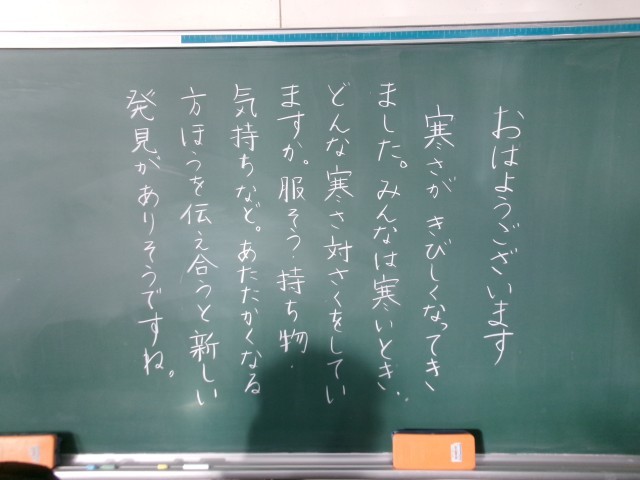 おはようございます
寒さがきびしくなってき
ました。みんなは寒いとき、
どんな寒さ対さくをしてい
ますか。服そう・持ち物・
気持ちなど。あたたかくなる
方ほうを伝え合うと新しい
発見がありそうですね。